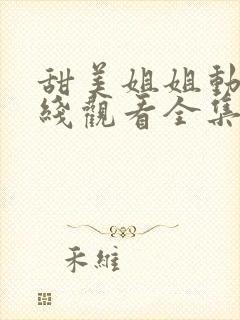 甜美姐姐動
綫觀看全集
禾維